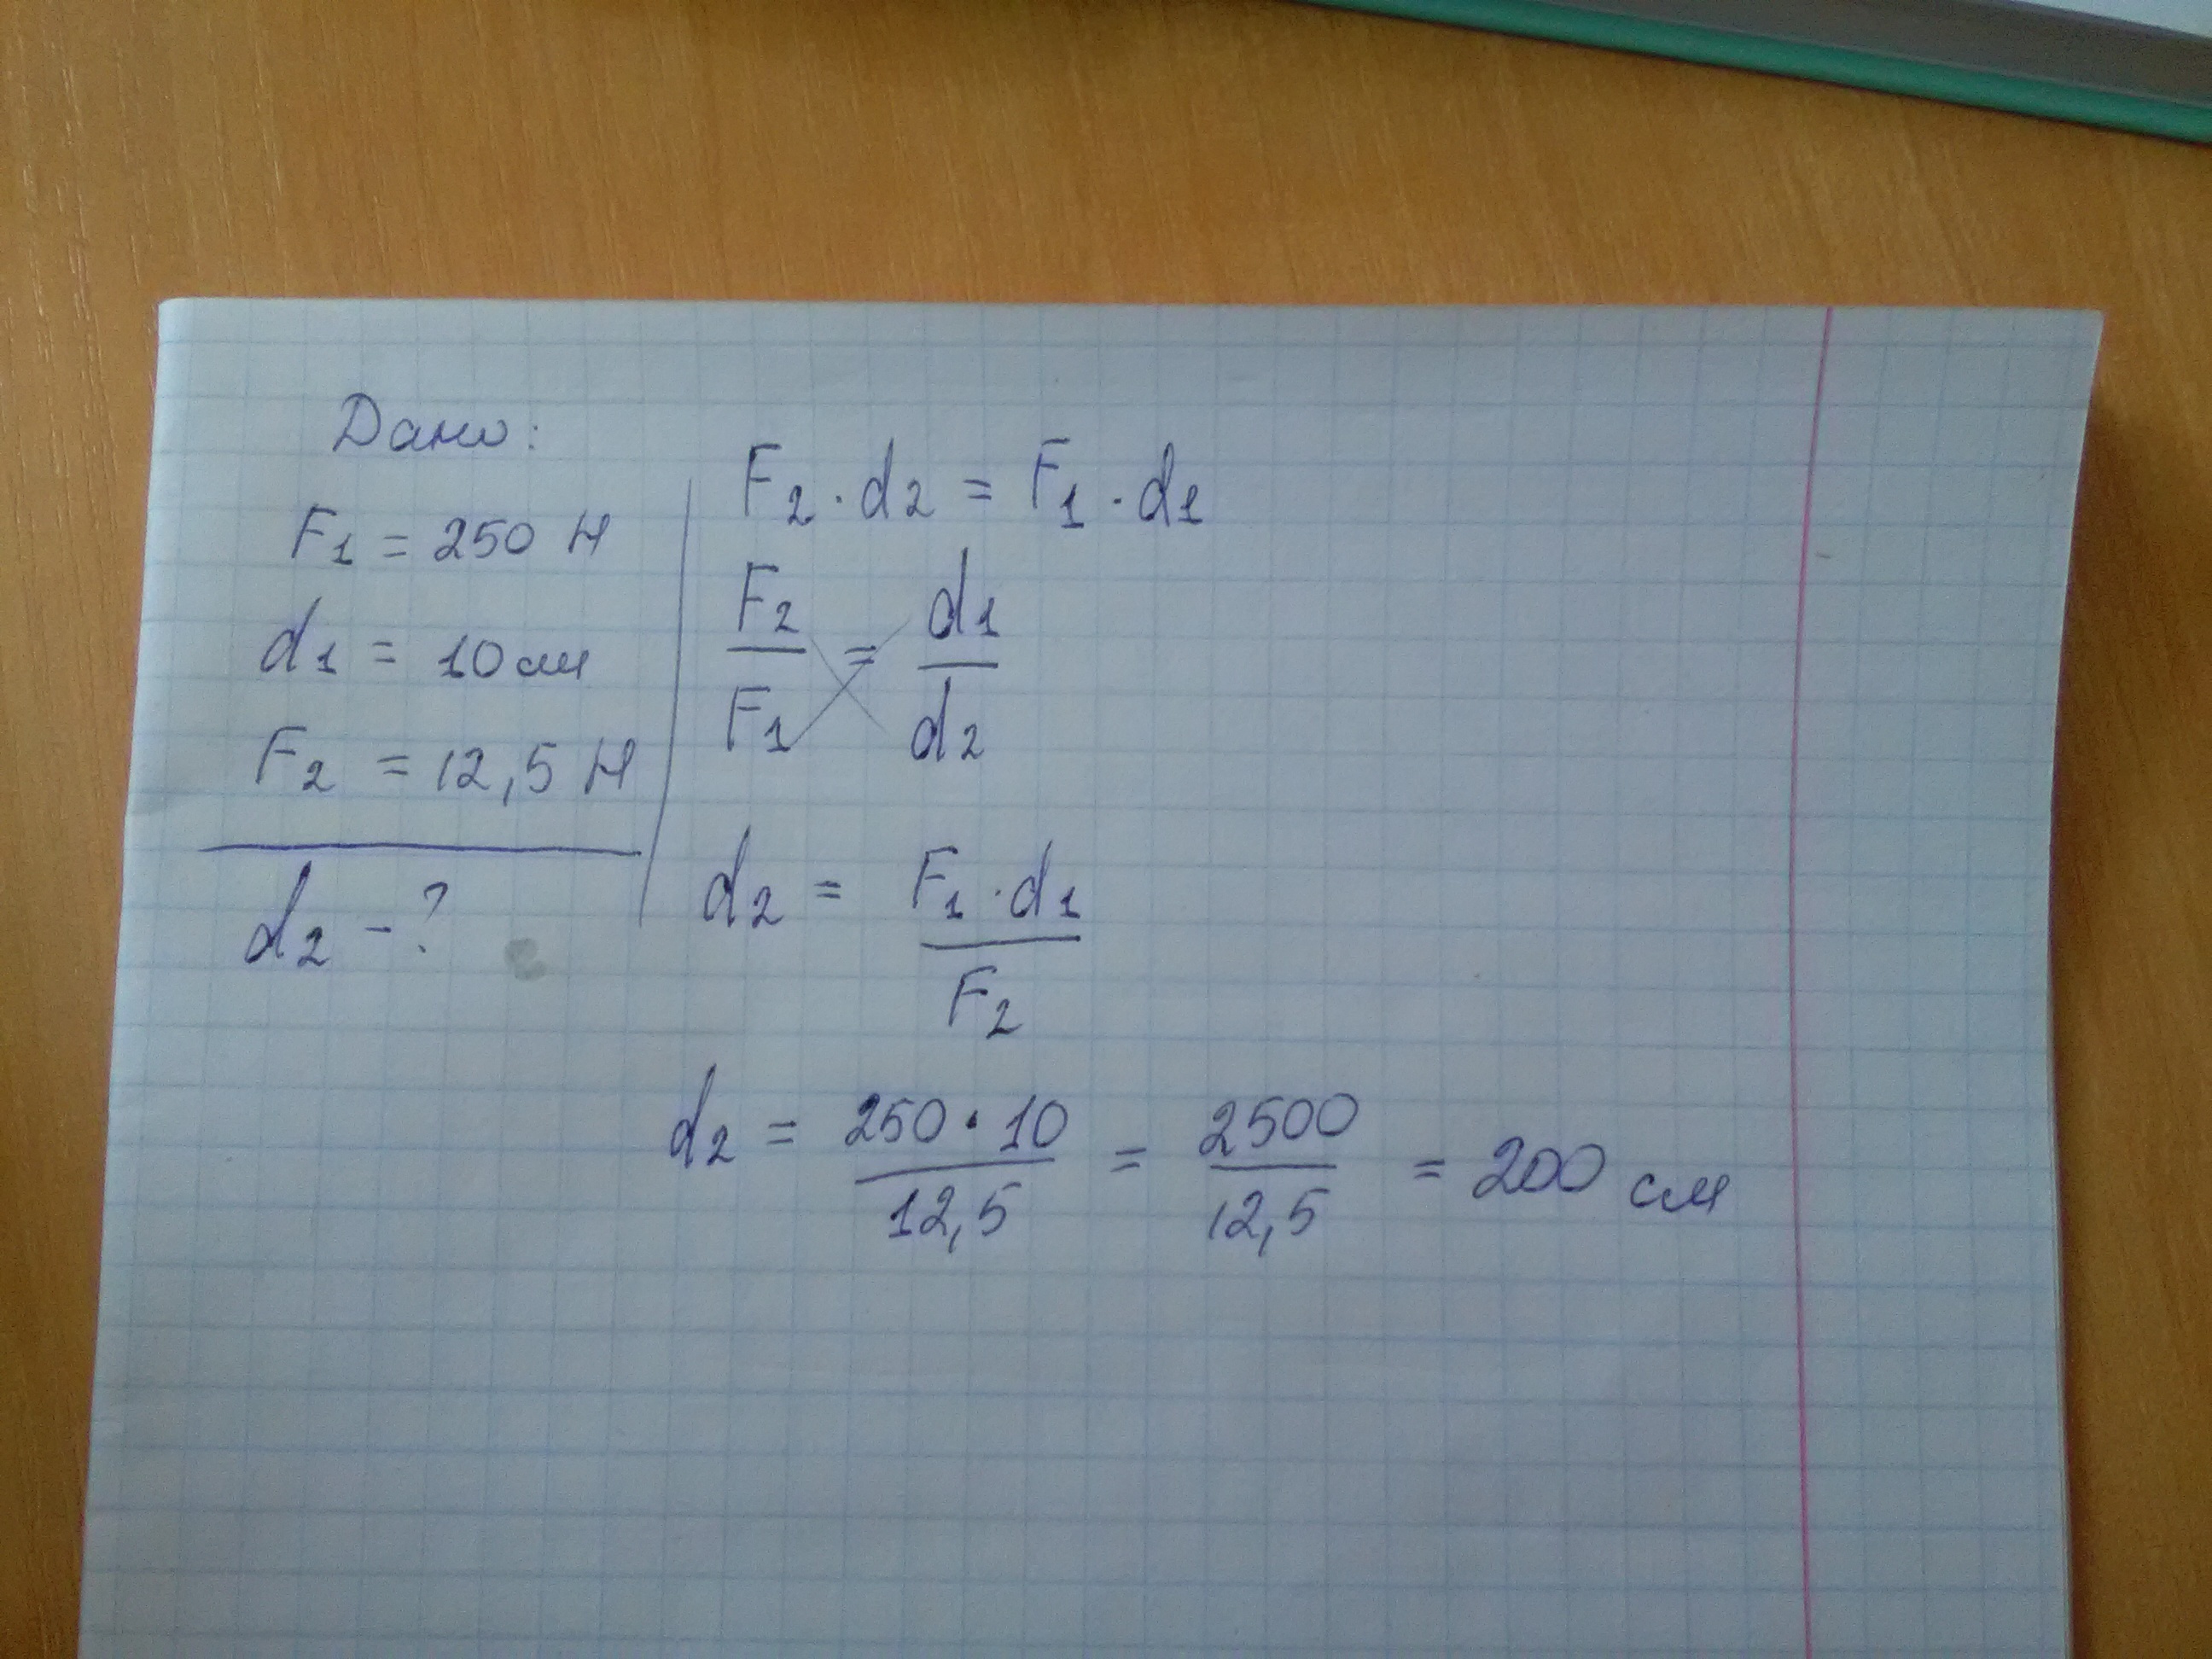 Дано:
F1 = 250 Н
d1 = 10 см
F2 = 12,5 Н
d2 - ?
F2 · d2 = F1 · d1
F2/F1 = d1/d2
d2 = F1 · d1/F2
d2 = 250 · 10/12,5 = 2500/12,5 = 200 см